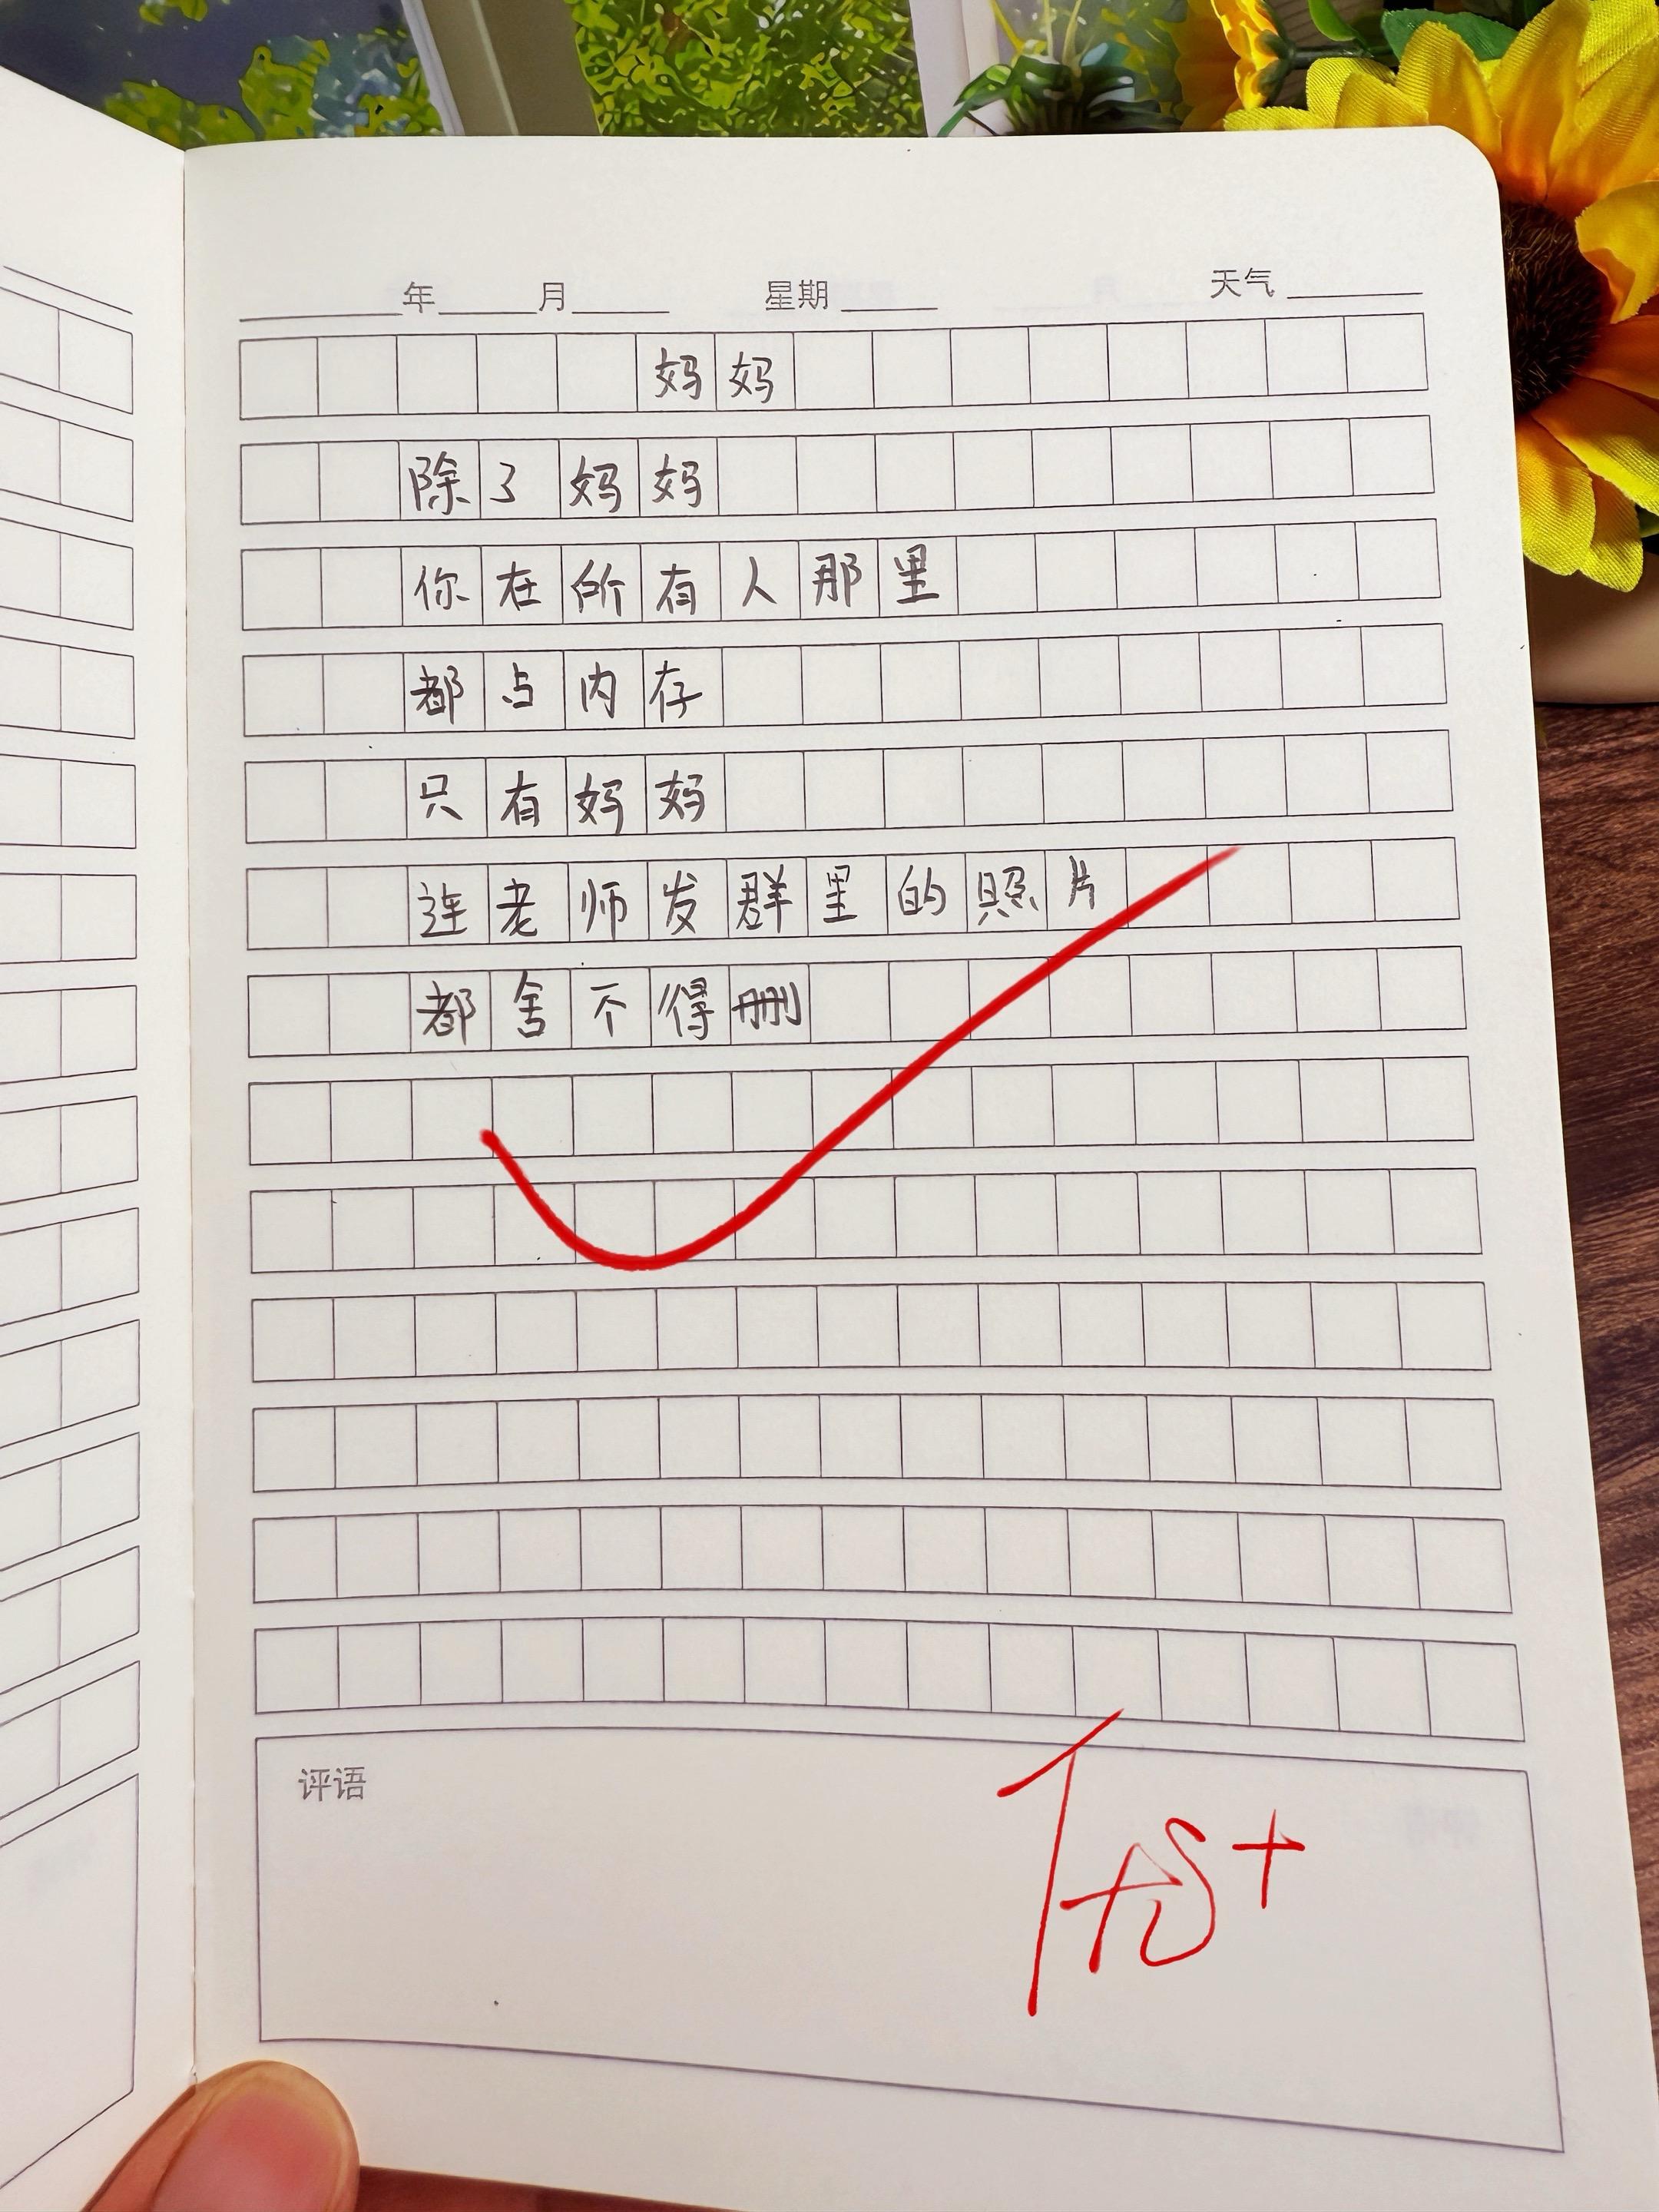 年 月 星期 天气
妈妈
除了妈妈
你在所有人那里
都占内存
只有妈妈
连老师发群里的照片
都舍不得删
评语